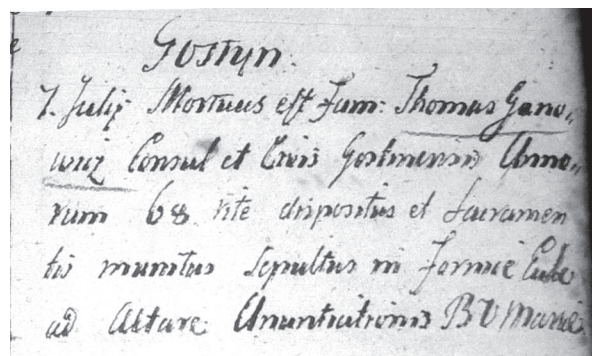 Gostyn.
7. Julij Mortuus est Fam: Thomas Gano„
wicz Consul et Civis Gostinensis Anno„
rum 68 rite dispositus et Sacramen
tis munitus Sepultus in Fornice Eccle
ad Altare Anuntiationis B V Mariæ.